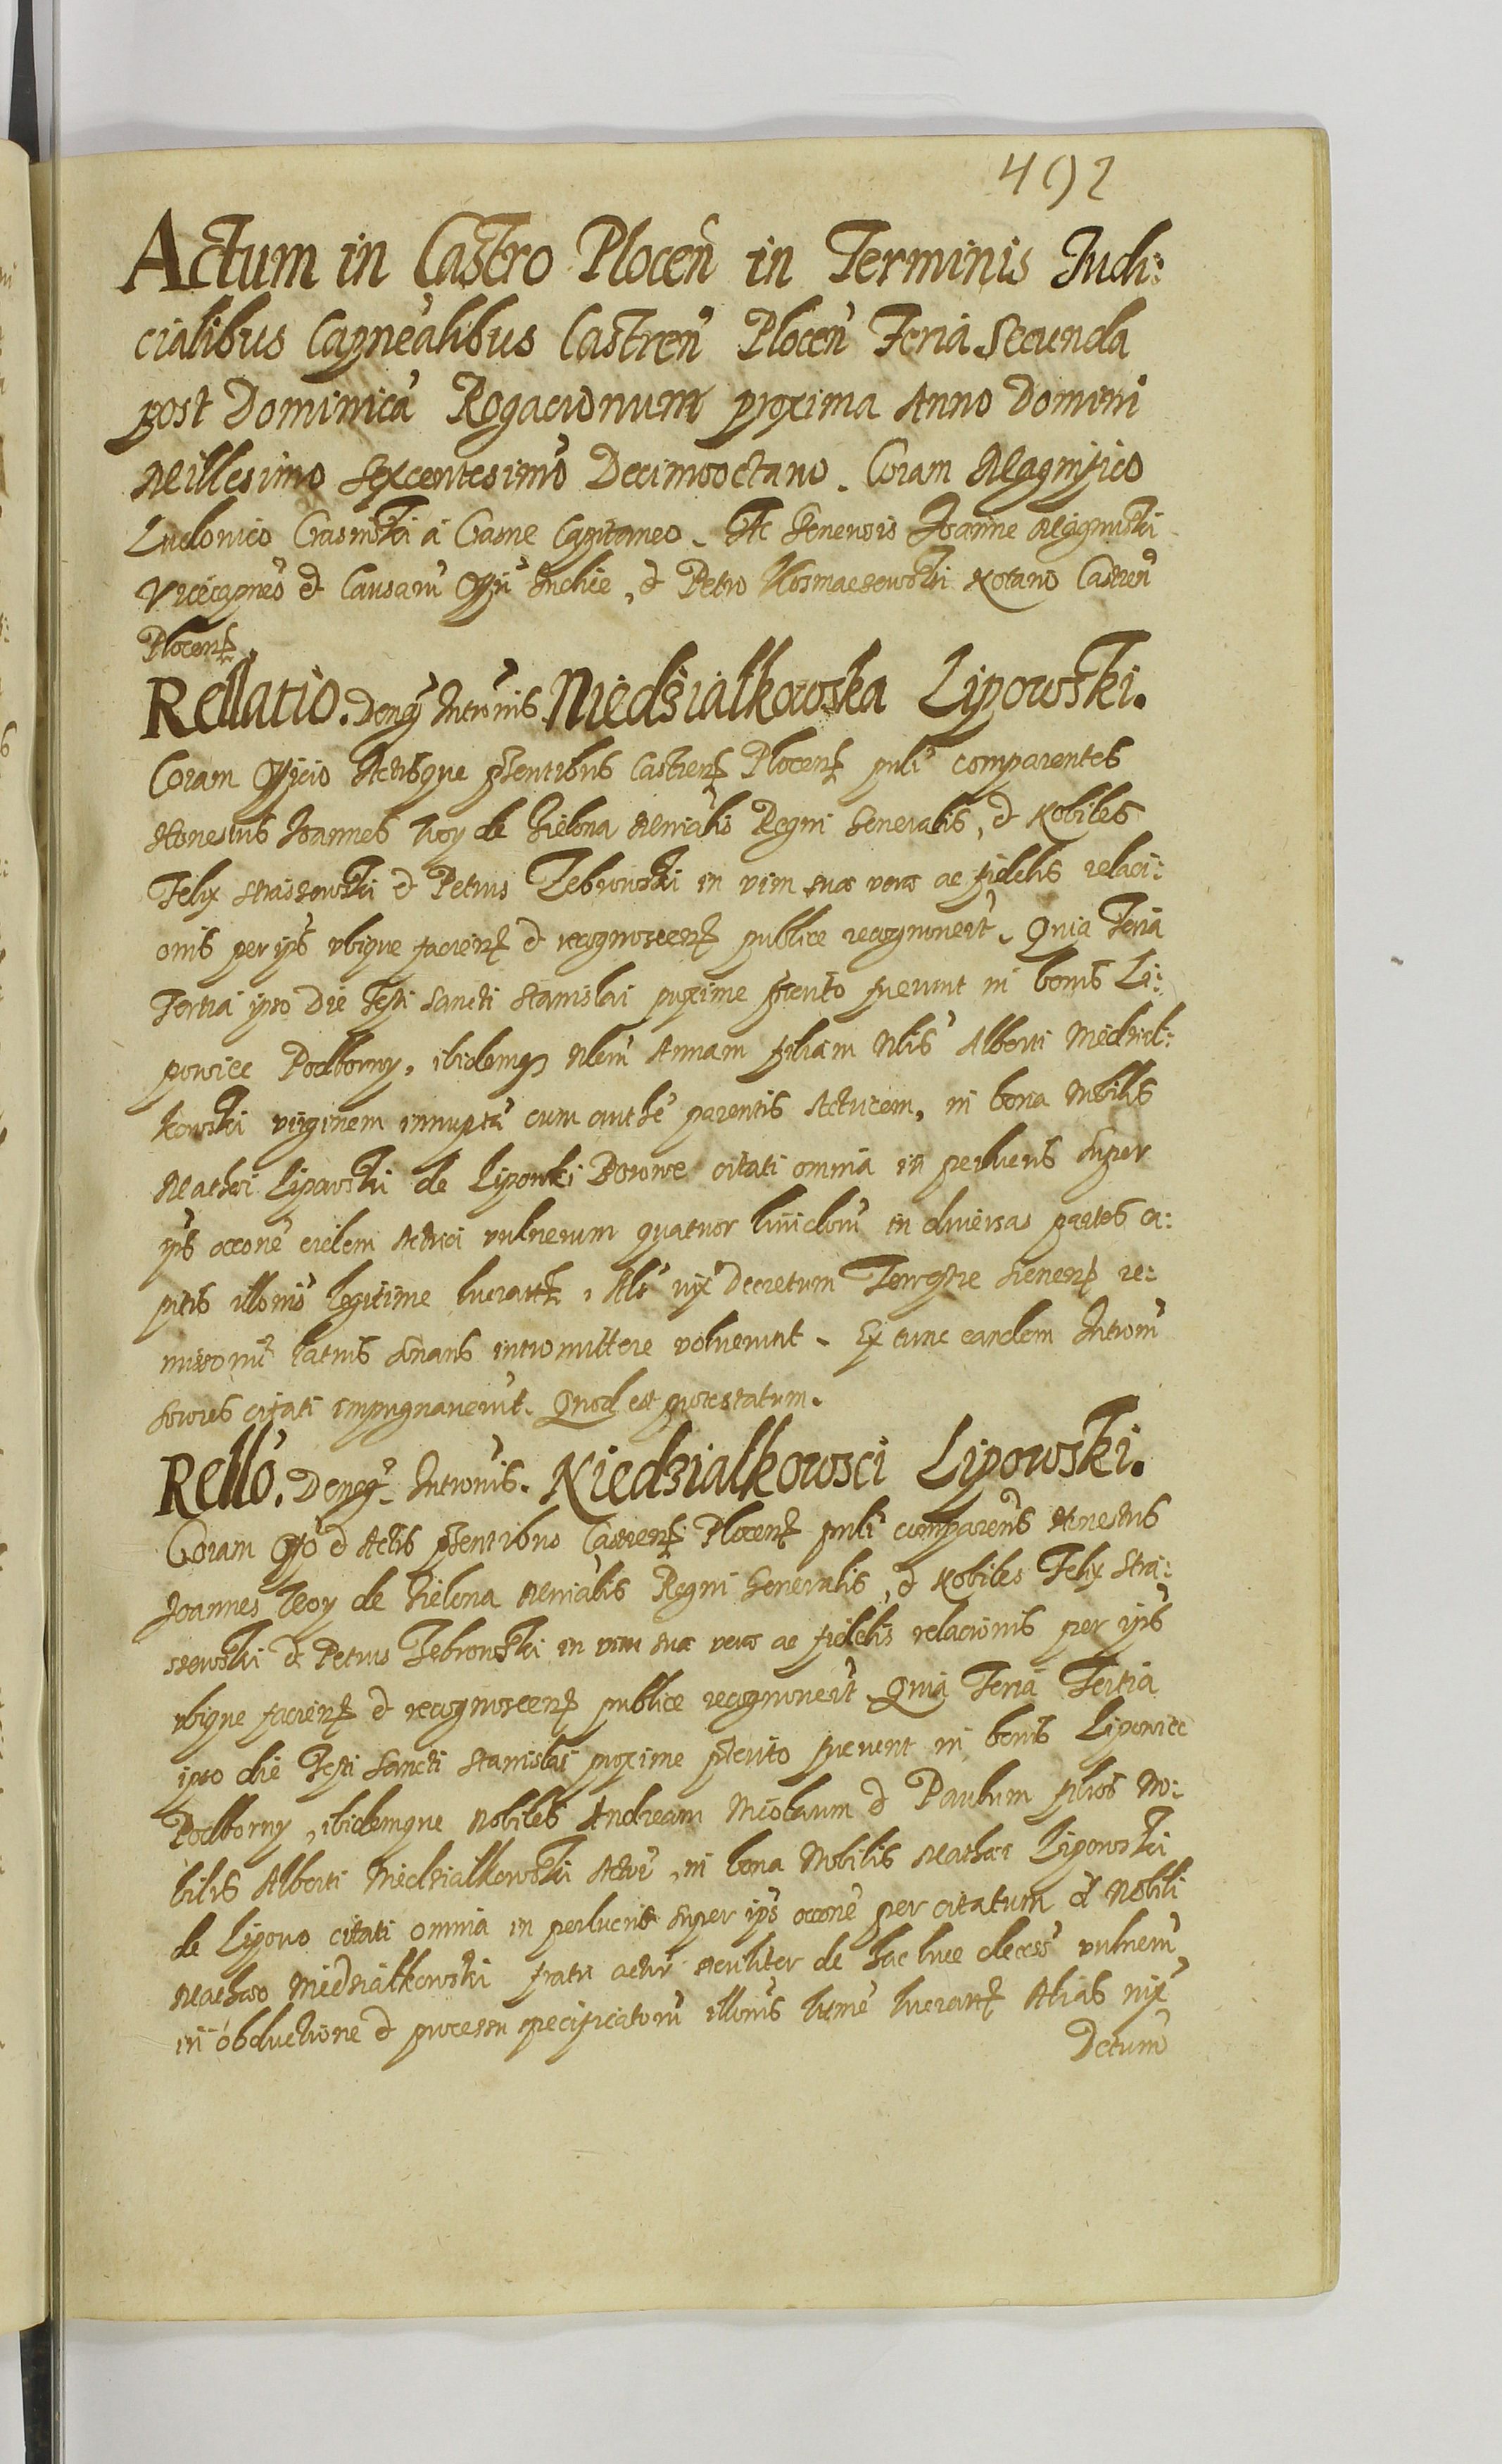 492
Actum in Castro Plocen in Terminis Judi:
cialibus Capnealibus Castren Plocen Feria Secunda
post Dominica Rogacionum proxima Anno Domini
Millesimo Sexcentesimo Decimooctauo. Coram Magnifico
Ludouico Crasinski a Crasne Capitaneo. Ac Generosis Joanne
Vicecapneo et Causaru Offii Judice, et Petro Kosmaczewski Notario Castren
Plocen
Rellatio. Deneg Intromis. Niedzialkowska Lipowski.
Coram Officio Actisque pntibus Castren Plocen psonali comparentes
Honestus Joannes Woy de Zielona Mnialis Regni Generalis, et Nobiles
Felix Straszewski et Petrus Zebrowski in vim suae verae ac fidelis relaci:
onis per ips vbique facien et recognoscen publice recognouert. Quia Feria
Tertia ipso Die Festi Sancti Stanislai proxime pterito fuerunt in bonis Li:
powiec Podborny, ibidemq Nlem Annam filiam Nlis Alberti Niedzial:
kowski virginem innupta cum authe parentis Actricem, in bona Nobilis
Mathei Lipowski de Lipowki Borowe citati omnia in perlucris super
ips occone eidem Actrici vulnerum quatuor liuidoru in diuersas partes ca:
pitis illoru legitime lucratt, Als vix Decretum Terrestre Generz re:
missonu latius sonans intromittere voluerunt. Ex tunc eandem Introm
sorores citati impugnauerut. Quod est protestatum.
Rello. Deneg. Intromis. Niedzialkowsci Lipowski.
Coram Offo et Actis pntibus Castren Plocen psonali comparens Honestus
Joannes Woy de Zielona Mnialis Regni Generalis, et Nobiles Felix Stra:
szewski et Petrus Zebrowski in vim suae verae ac fidelis relacionis per ips
vbique facien et recognoscen publice recognouert. Quia Feria Tertia
ipso die Festi Sancti Stanislai proxime pterito fuerunt in bonis Lipowiec
Podborny, ibidemque Nobiles Andream Nicolaum et Paulum filios No:
bilis Alberti Niedzialkowski Actor, in bona Nobilis Mathei Lipowski
de Lipowo citati omnia in perlucris super ips occone per citatum et Nobili
Matheo Niedzialkowski fratri actor de hac luce decess vulneru
in obductione et processu specificatoru illorus ltime lucratt Alias vix
Dctum